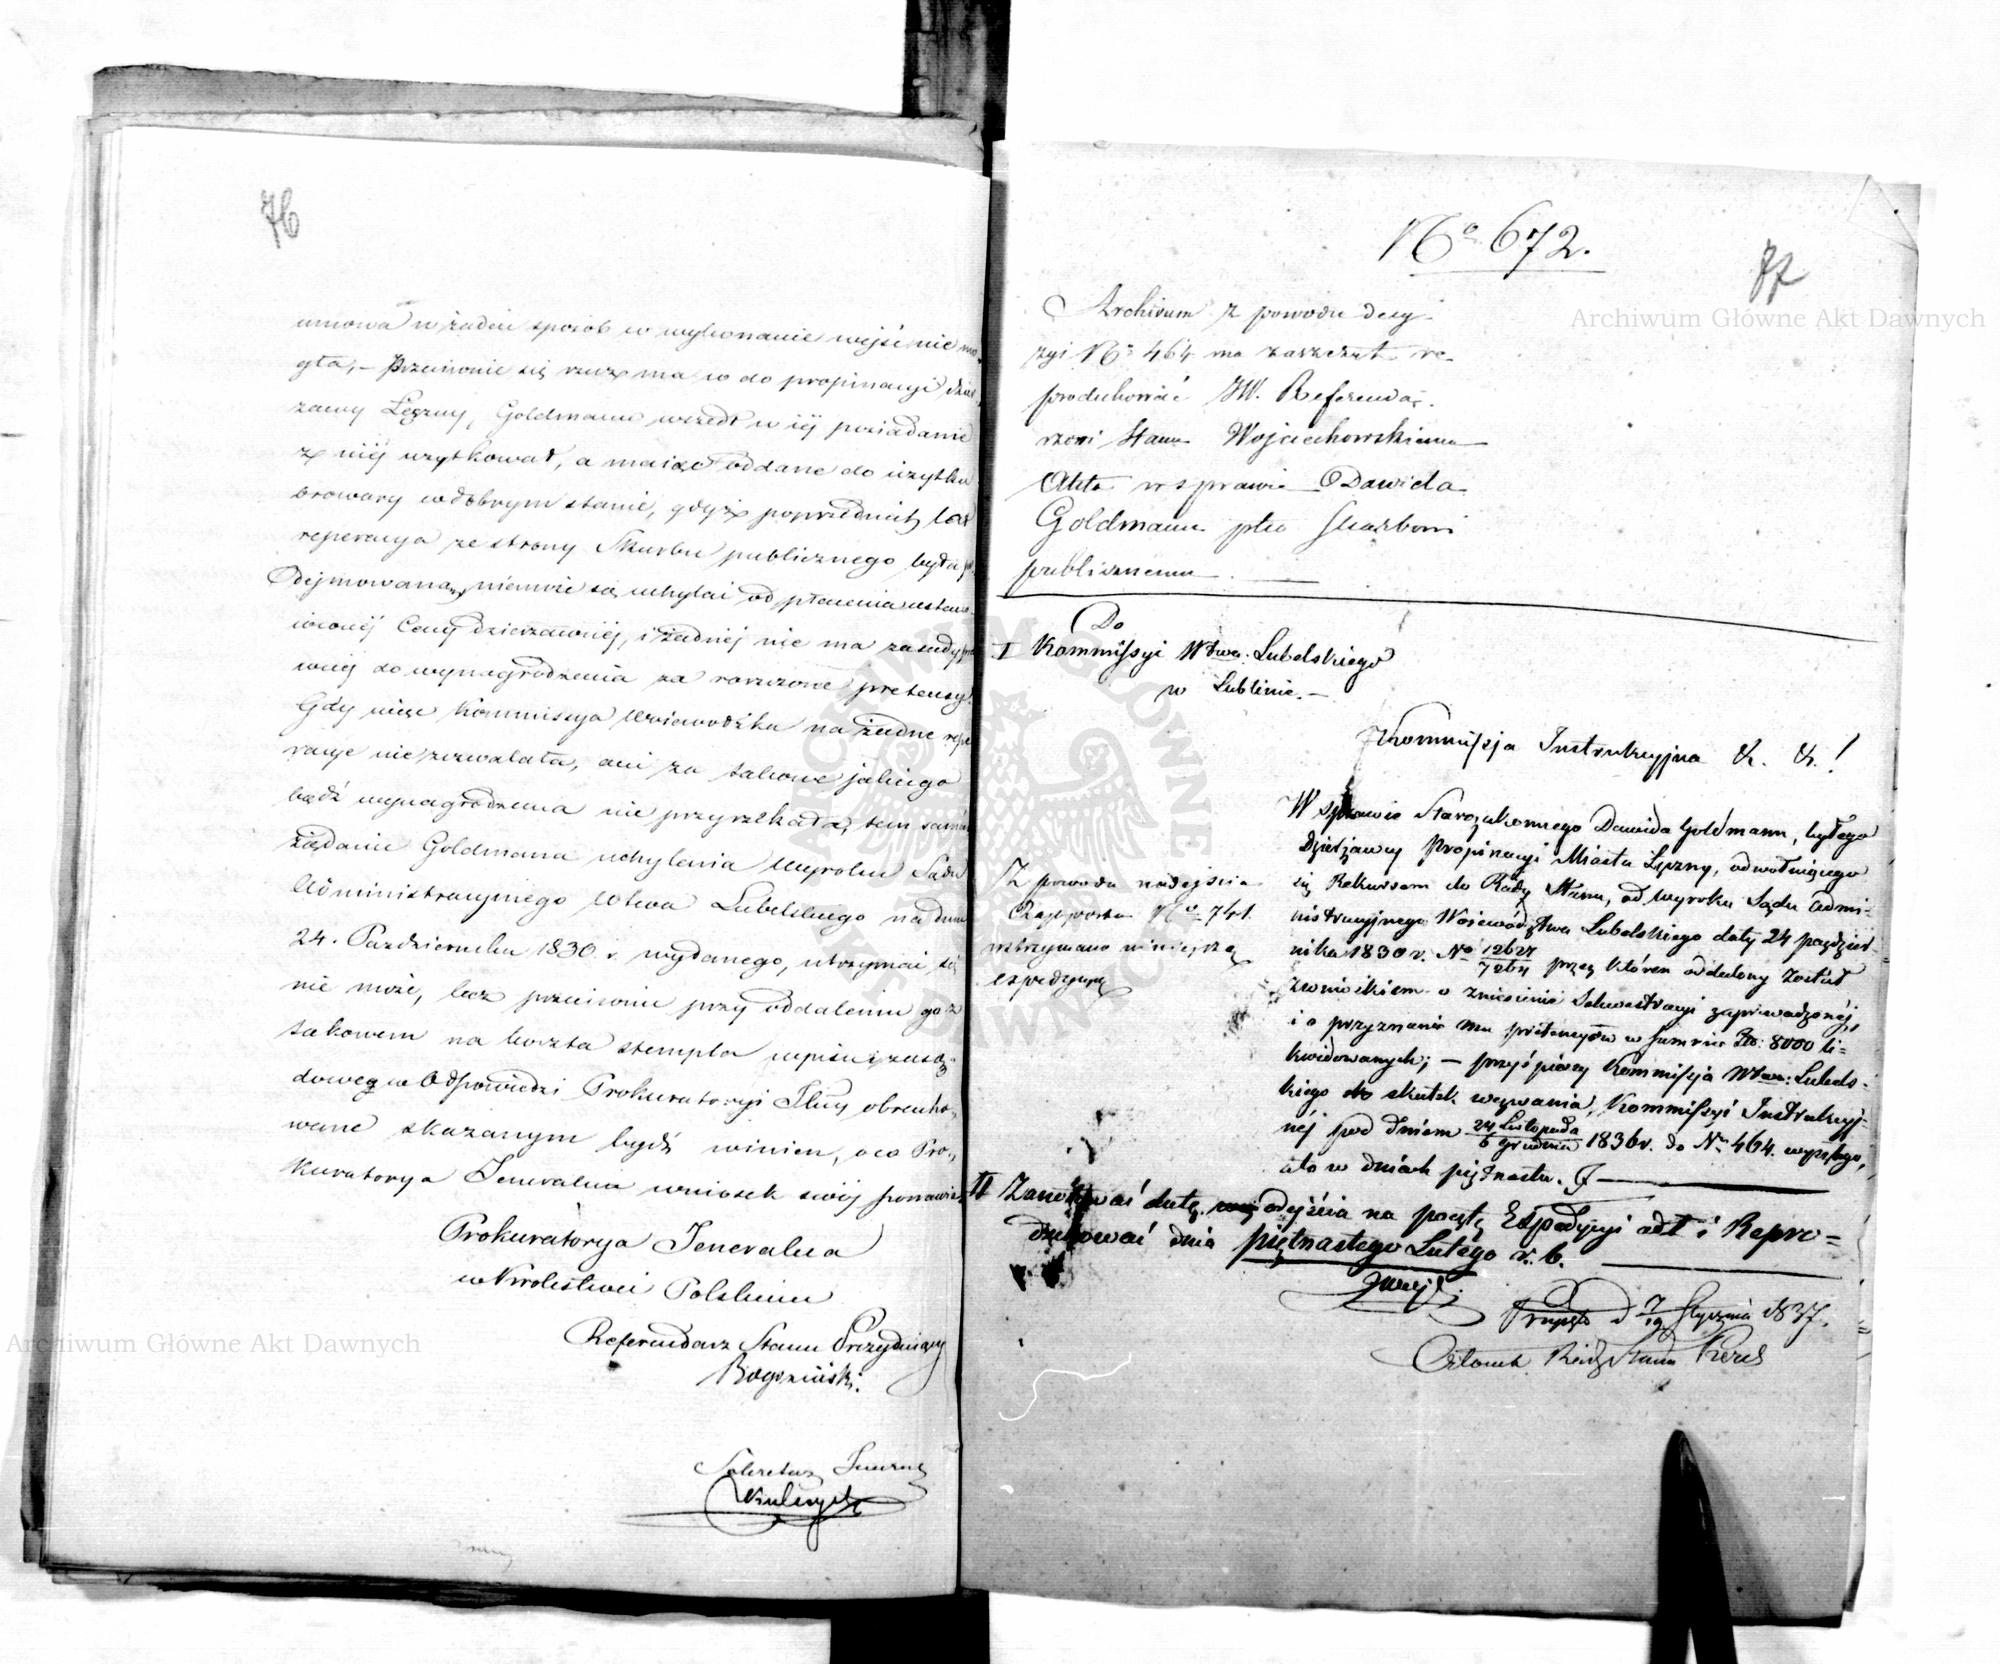 76
umowa w żaden sposób w wykonanie wejść nie mo-
gła, – Przeciwnie się rzecz ma co do propinacyi dzier-
żawy Łęczny, Goldmann wszedł w iéj posiadanie
z niéj użytkował, a maiąc oddane do użytku
browary w dobrym stanie, gdyż poprzednich lat
reperacya ze strony Skarbu publicznego była
odejmowana, niemoże się uchylać od płacenia ustano-
wionéj Ceny dzierżawnéj, i żadnéj nie ma zasady
do wynagrodzenia za roszczone pretensye.
Gdy więc Kommissya Woiewódzka na żadne repe-
racye nie zezwalała, ani za takowe jakiego
bądź wynagrodzenia nie przyrzekała, tem samém
żądanie Goldmana uchylenia Wyroku Sądu
Administracyinego Wtwa Lubelskiego na dniu
24. Pazdziernika 1830. r. wydanego, utrzymać się
nie może, lecz przeciwnie przy oddaleniu go z
takowem na koszta stempla wpisu i zasą-
dowe w Odpowiedzi Prokuratoryi Jlney obracho-
wane skazanym bydź winien, o co Pro-
kuratorya Jeneralna wniosek swój ponawia.
Prokuratorya Jeneralna
w Królestwie Polskiem
Referendarz Stanu Prezyduiący
Sekretarz Jeneralny
No 672.
77
Archivum z powodu decy-
zyi No 464 ma zaraz
produkować JW. Referenda-
rzowi Stanu Wojciechowskiemu
Akta w sprawie Dawida
Goldmann pko Skarbowi
publicznemu.
Do
I Kommissyi Wtwa. Lubelskiego
w Lublinie. –
Kommissja Instrukcyjna &. &. !
W sprawie Starozakonnego Dawida Goldmann, byłego
Dzierżawcy Propinacyi Miasta Łęczny, odwołuiącego
się Rekursem do Rady Stanu, od wyroku Sądu Admi-
nistracyjnego Województwa Lubelskiego daty 24 paździer-
nika 1830 r. No 12627/7264 przez któren oddalony został
z wnioskiem o zniesienie Sekwestracyi zaprowadzonéj,
i o przyznanie mu pretensyów w summie Złp: 8000 li-
kwidowanych; – przyśpieszy Kommissja Wtwa: Lubels-
kiego skutek wezwania, Kommissyi Instrukcyj-
néj pod dniem 24 Listopada/6 Grudnia 1836 r. do No 464. wyszłego,
a to w dniach piętnastu.
Z powodu nadejścia
Rapportu No 741.
wstrzymano niniejszą
expedycyę
II Zanotować datę odejścia na pocztę Expedycyi ad I i Repro-
dukować dnia piętnastego Lutego r. b.
d 7/19 Stycznia 1837.
Członek Rady Stanu
Archiwum Główne Akt Dawnych
Archiwum Główne Akt Dawnych
ARCHIWUM GŁÓWNE AKT DAWNYCH